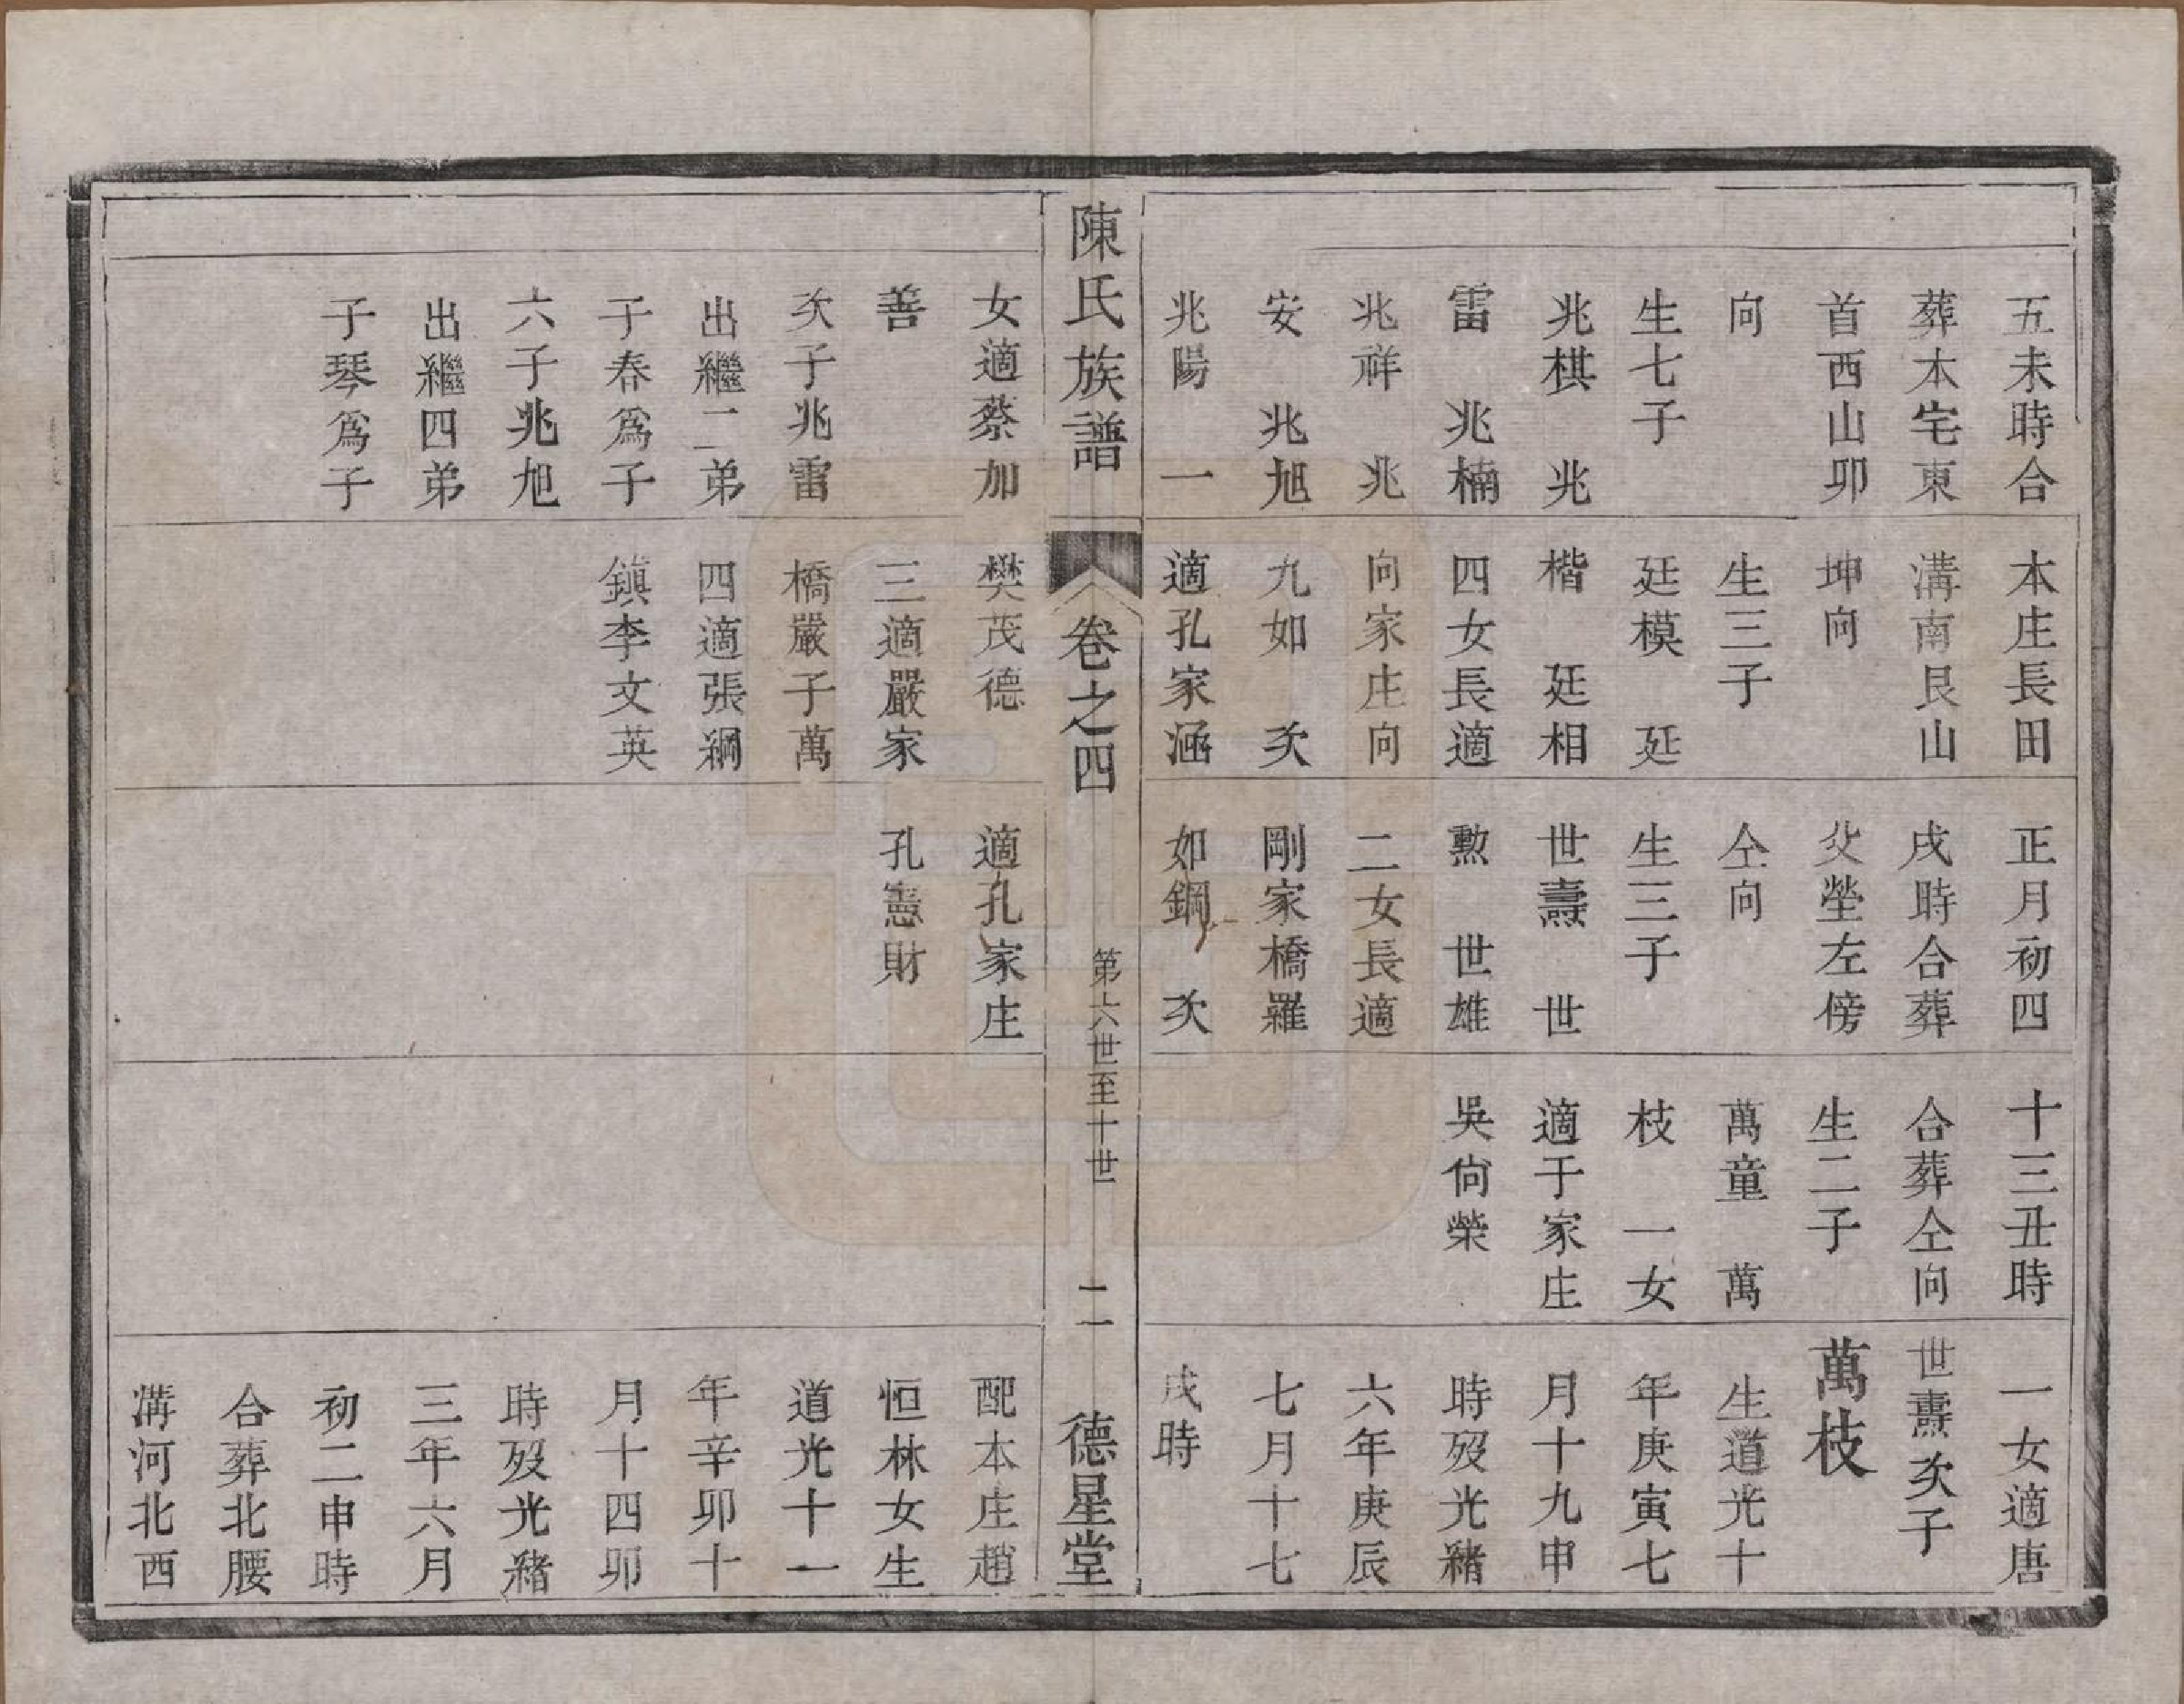 五未時合
葬本宅東
首西山卯
向
生七子
兆棋　兆
雷　兆楠
兆祥　兆
安　兆旭
兆陽　一
本庄長田
溝南艮山
坤向
生三子
廷模　廷
楷　廷相
四女長適
向家庄向
九如　次
適孔家涵
正月初四
戌時合葬
父塋左傍
仝向
生三子
世壽　世
勲　世雄
二女長適
剛家橋羅
如鋼　次
十三丑時
合葬仝向
生二子
萬童　萬
枝　一女
適于家庄
吳尙榮
一女適唐
世燾次子
萬枝
生道光十
年庚寅七
月十九申
時歿光緒
六年庚辰
七月十七
戌時
陳氏族譜
卷之四
第六世至十世
二
德星堂
女適蔡加
善
次子兆雷
出繼二弟
子春爲子
六子兆旭
出繼四弟
子琴爲子
樊茂德
三適嚴家
橋嚴子萬
四適張綱
鎮李文英
適孔家庄
孔憲財
配本庄趙
恒林女生
道光十一
年辛卯十
月十四卯
時歿光緒
三年六月
初二申時
合葬北腰
溝河北西